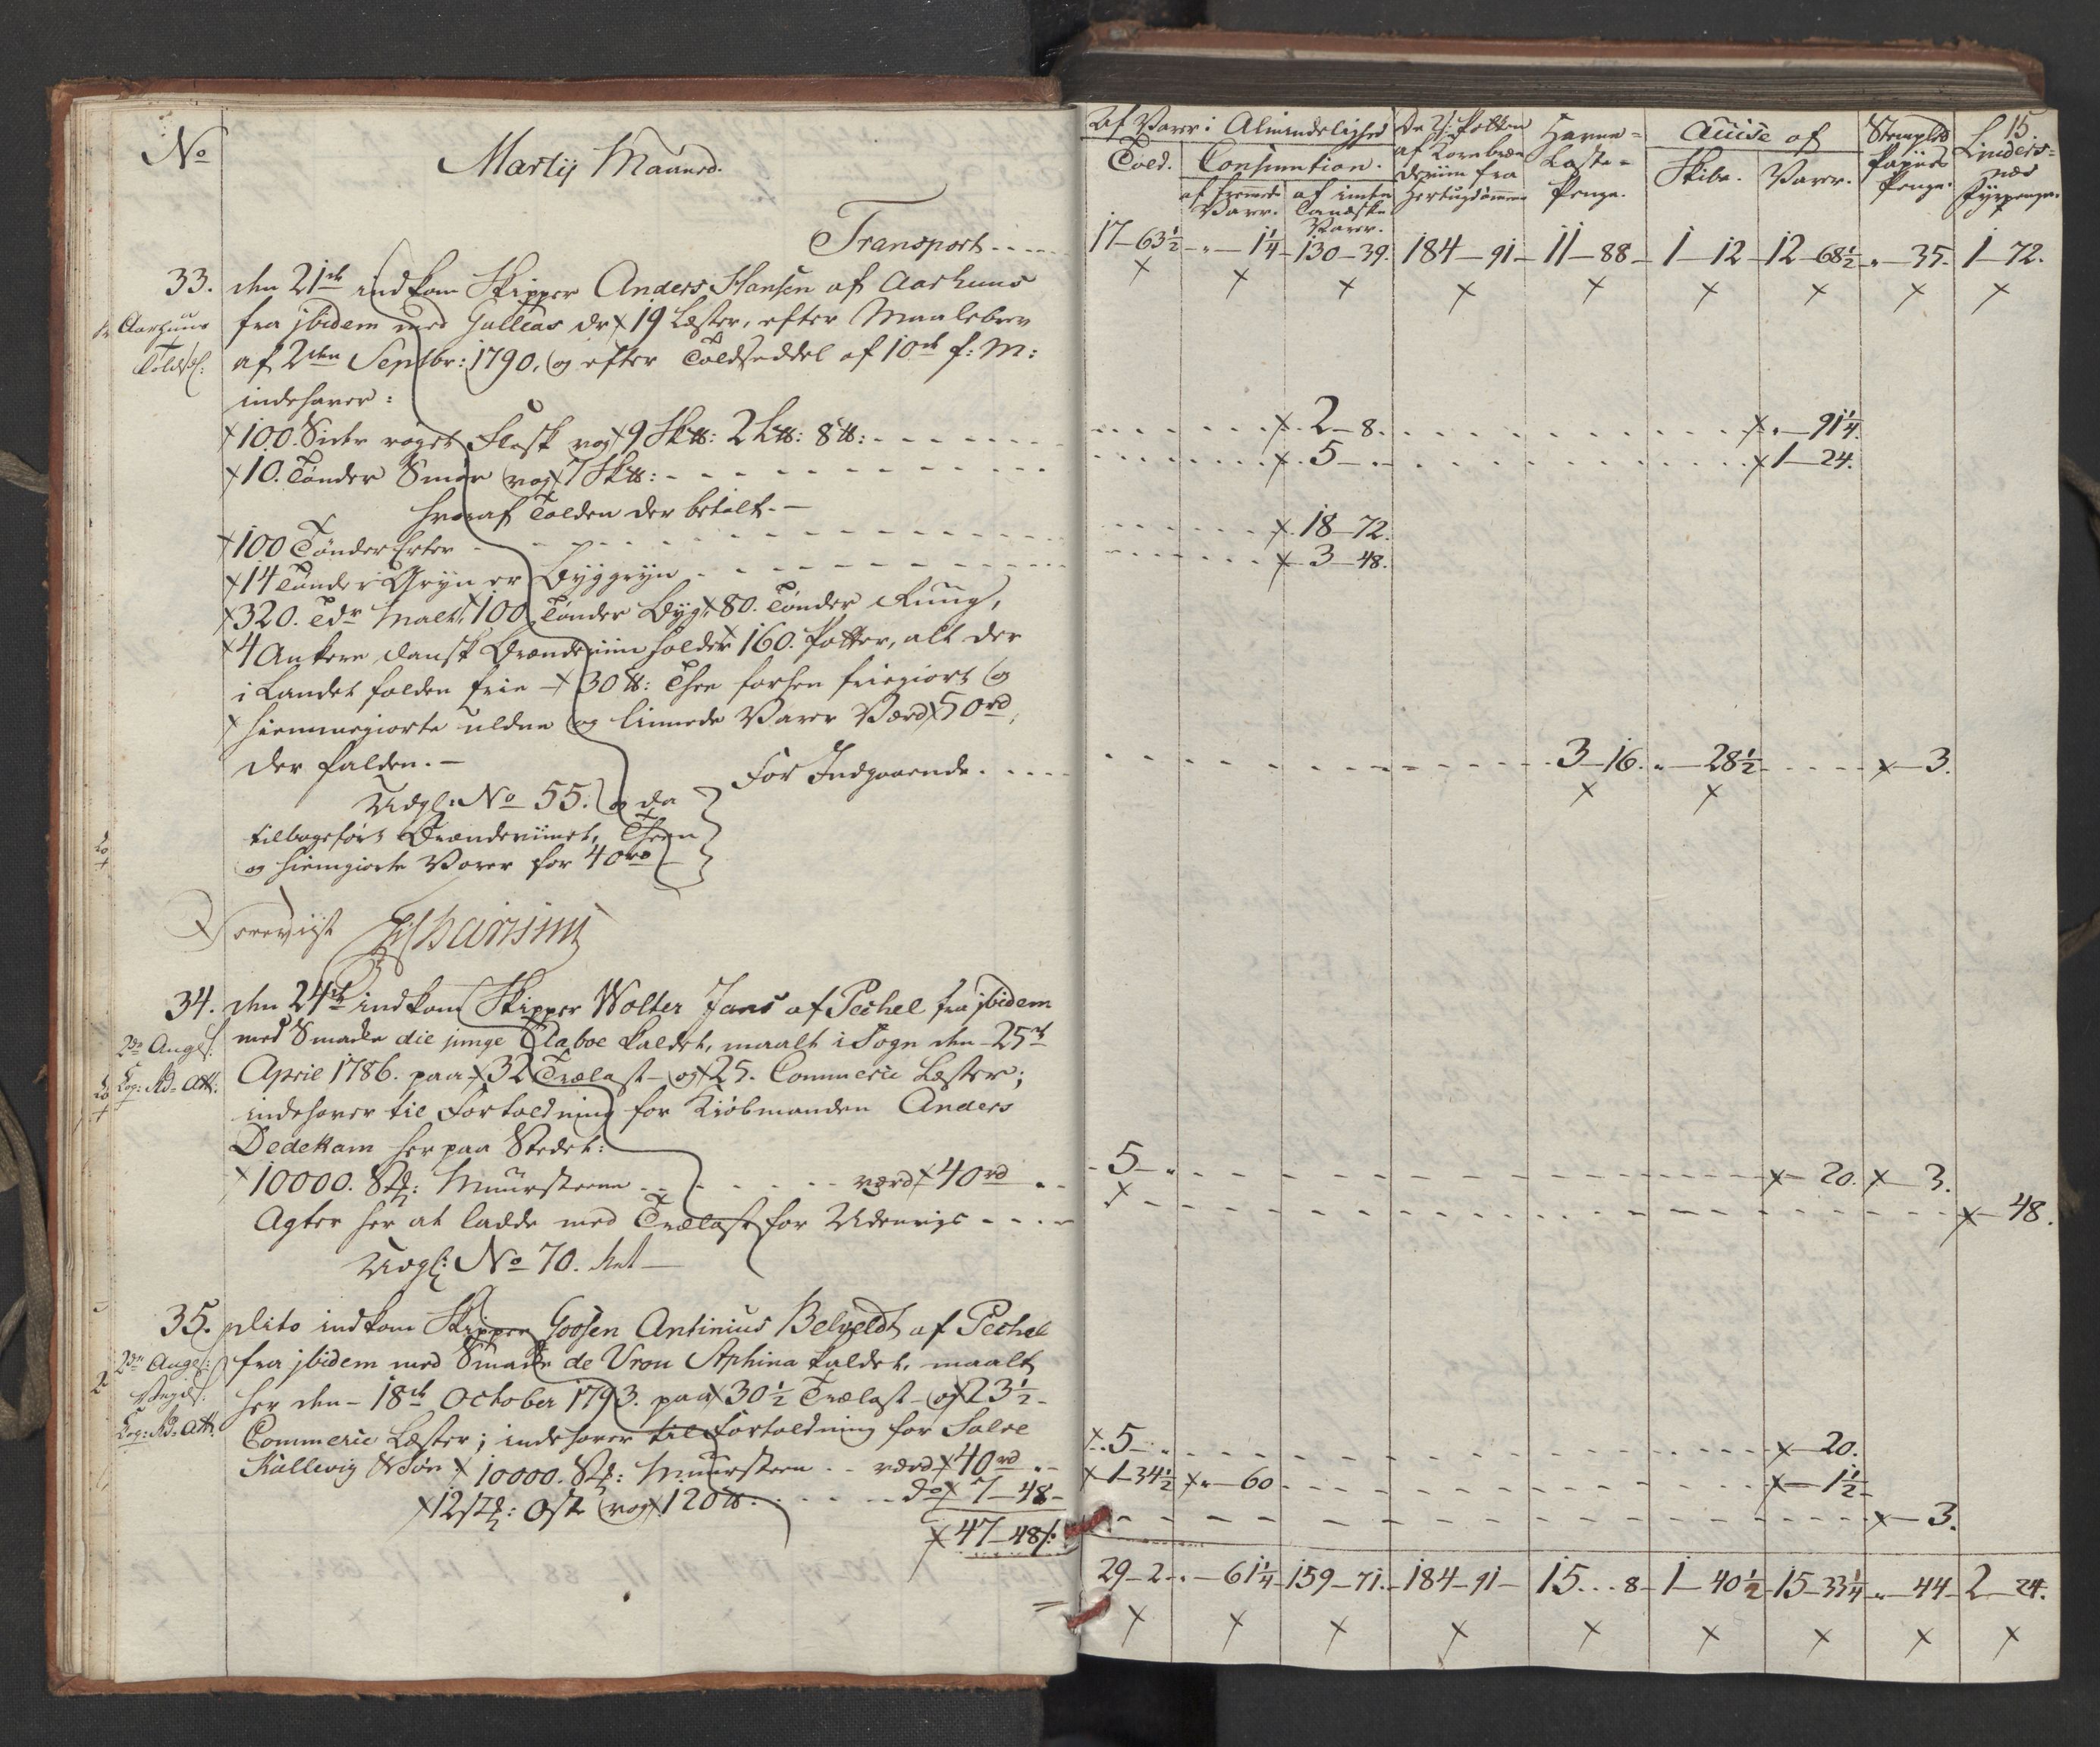 No
Martij Maaned.
Transport
33. den 21de indkom Skipper Anders Hansen af Aarhuus
Aarhuus
Toldsl:
fra ibidem med Gallias dr 19 Læster, efter Maalebrev
af 2den Septbr: 1790, og efter Toldseddel af 10de f: M:
indehaver:
100. Sider røget Flesk vog 9 Sk℔: 2 L℔: 8 ℔:
10. Tønder Smør vog 7 Sk℔:
hvoraf Tolden der betalt. —
100 Tønder Erter
14 Tønder Gryn er Byggryn
320. Tdr Malt, 100 Tønder Byg, 80. Tønder Rug,
4 Ankere dansk Brændeviin holder 160. Potter, alt der
i Landet falden frie — 30 ℔: Thee forhen friegiort og
hiemmegiorte uldne og linnede Varer Værd 50 rd,
der falden. —
For Indgaaende.
Udgl: No 55. og da
tilbageført Brændeviinet, Theen
og hiemgiorte Varer for 40 rd
Foreviist
34. den 24de indkom Skipper Wolter Jans af Pechel fra ibidem
2de Angl:
Kop: Rd= Att:
med Smakke die junge Elaboe kaldet, maalt i Sogn den 25de
April 1786. paa 32 Trælast — og 25. Commerce Læster;
indehaver til Fortoldning for Kiøbmanden Anders
Dedekam her paa Stedet:
10000. Stk: Muursteene værd 40 rd
Agter her at ladde med Trælast for Udenrigs
Udgl: No 70.
35. dito indkom Skipper Goosen Antinius Belveldt af Pechel
2de Angl:
Kop: Rd= Att:
fra ibidem med Smakke de Vrou Aphina kaldet, maalt
her den 18de October 1793. paa 30½ Trælast — og 23½
Commerce Læster; indehaver til Fortoldning for Salve
Kallevig & Søn 10000. Stk: Muursteen værd 40 rd
12 stk: Oste vog 120 ℔. do 7—48
47—48 s:
15.
Af Varer i Almindelighed
Told. Consumtion.
af fremmede Varer. af inden Landske Varer.
af Kornbræn
deviin fra
Hertugdømmene
Havne=
Laste=
Penge.
Accise af
Skibe. Varer.
Stemplet
Papiirs
Penge.
Linders=
næs
Fyrpenge.
17—63½ „—1¼ 130—39. 184—91 11—88 1—12 12—68½ „—35. 1—72.
2—8. „—91¼.
5—„ 1—24.
18—72.
3—48.
3—16. „—28½ —3.
5—„ —20. —3.
—48.
5—„ —20.
1—34½ „—60 —1½
—3.
29—2 „—61¼ 159—71. 184—91 15...8 1—40½ 15—33¼ „—44 2—24.